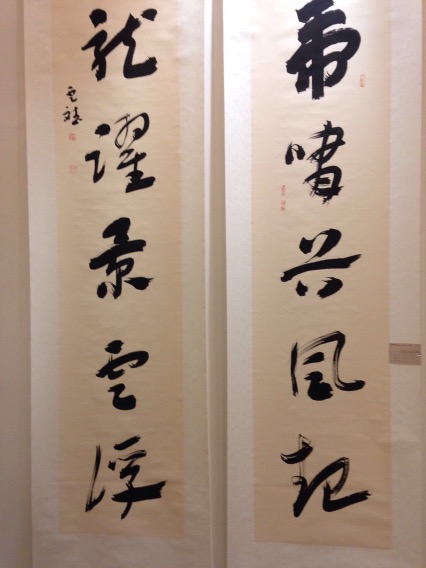 虎嘯谷風起
龍躍景雲浮